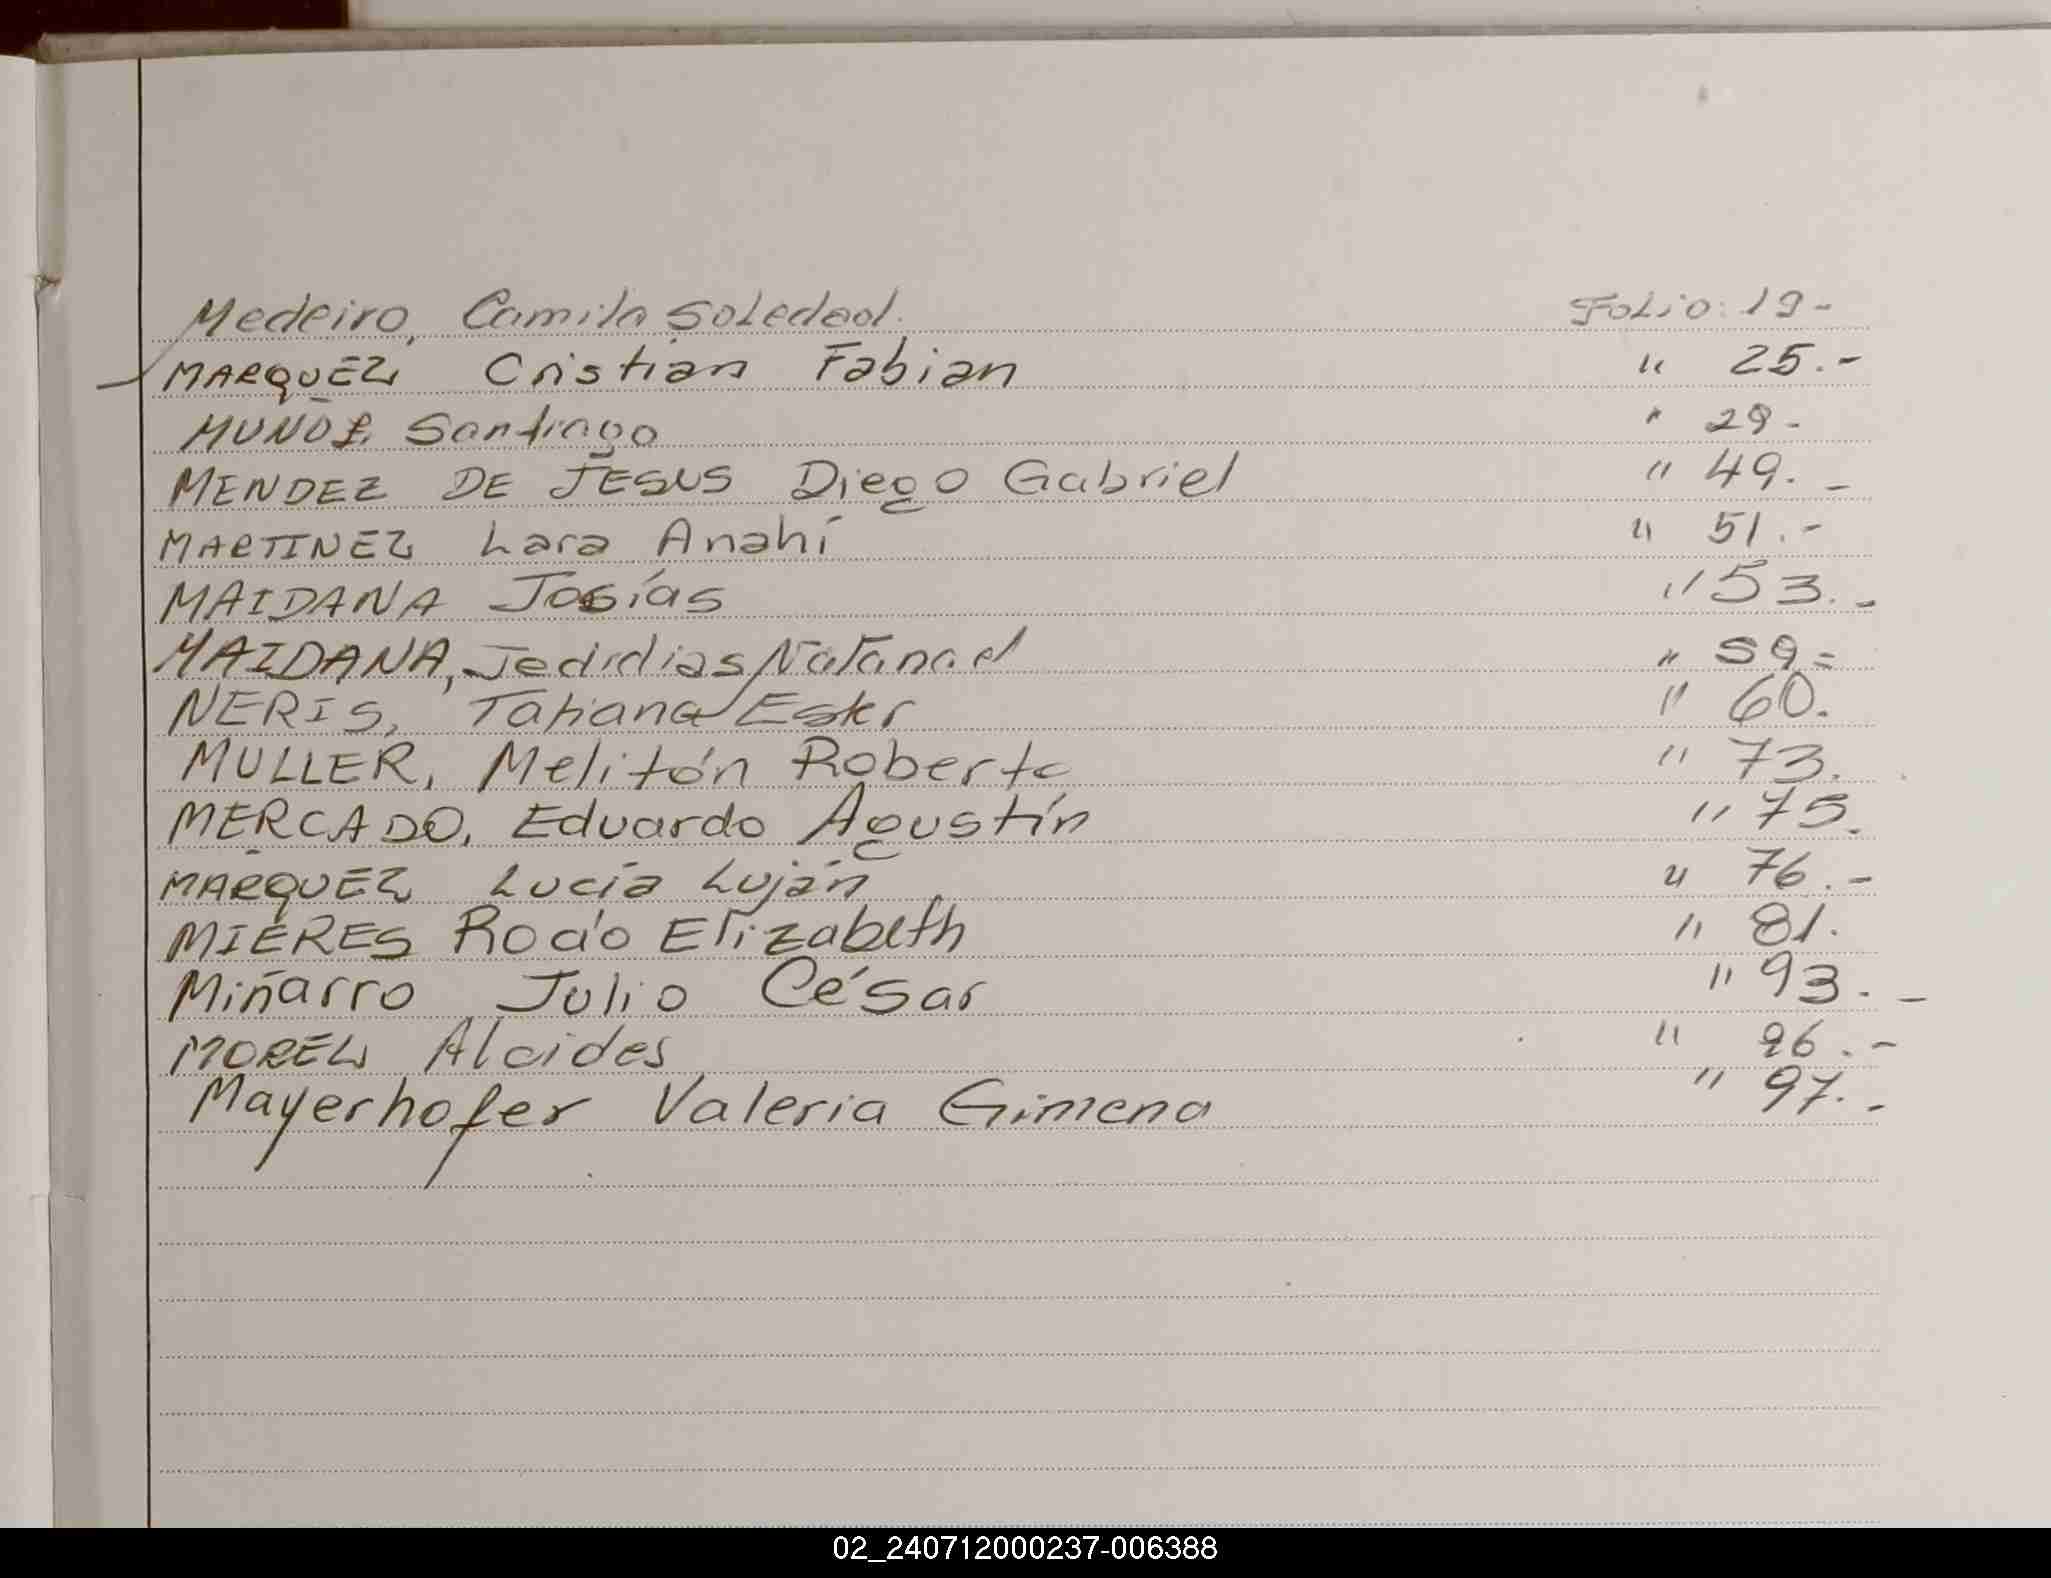 Medeiro, Camila Soledad. Folio: 19-
MARQUEZ, Cristian Fabian " 25.-
Santiago " 29-
MENDEZ DE JESUS Diego Gabriel " 49.-
MARTINEZ Lara Anahí " 51.-
MAIDANA Josías " 53.-
MAIDANA, Jedidias Natanael " 59=
NERIS, Tatiana Ester " 60.
MULLER, Melitón Roberto " 73.
MERCADO, Eduardo Agustín " 75.
MARQUEZ Lucía Luján " 76.-
MIERES Rocío Elizabeth " 81.
Miñarro Julio César " 93.-
MOREL, Alcides " 96.-
Mayerhofer Valeria Gimena " 97.-
02_240712000237-006388